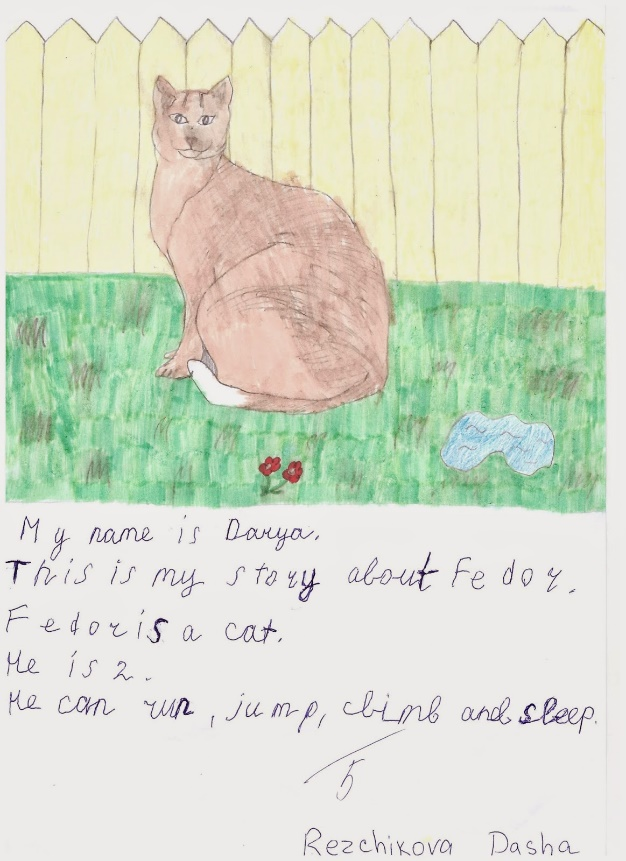 My name is Darya.
This is my story about Fedor.
Fedor is a cat.
He is 2.
He can run, jump, climb and sleep.
5
Rezchikova Dasha